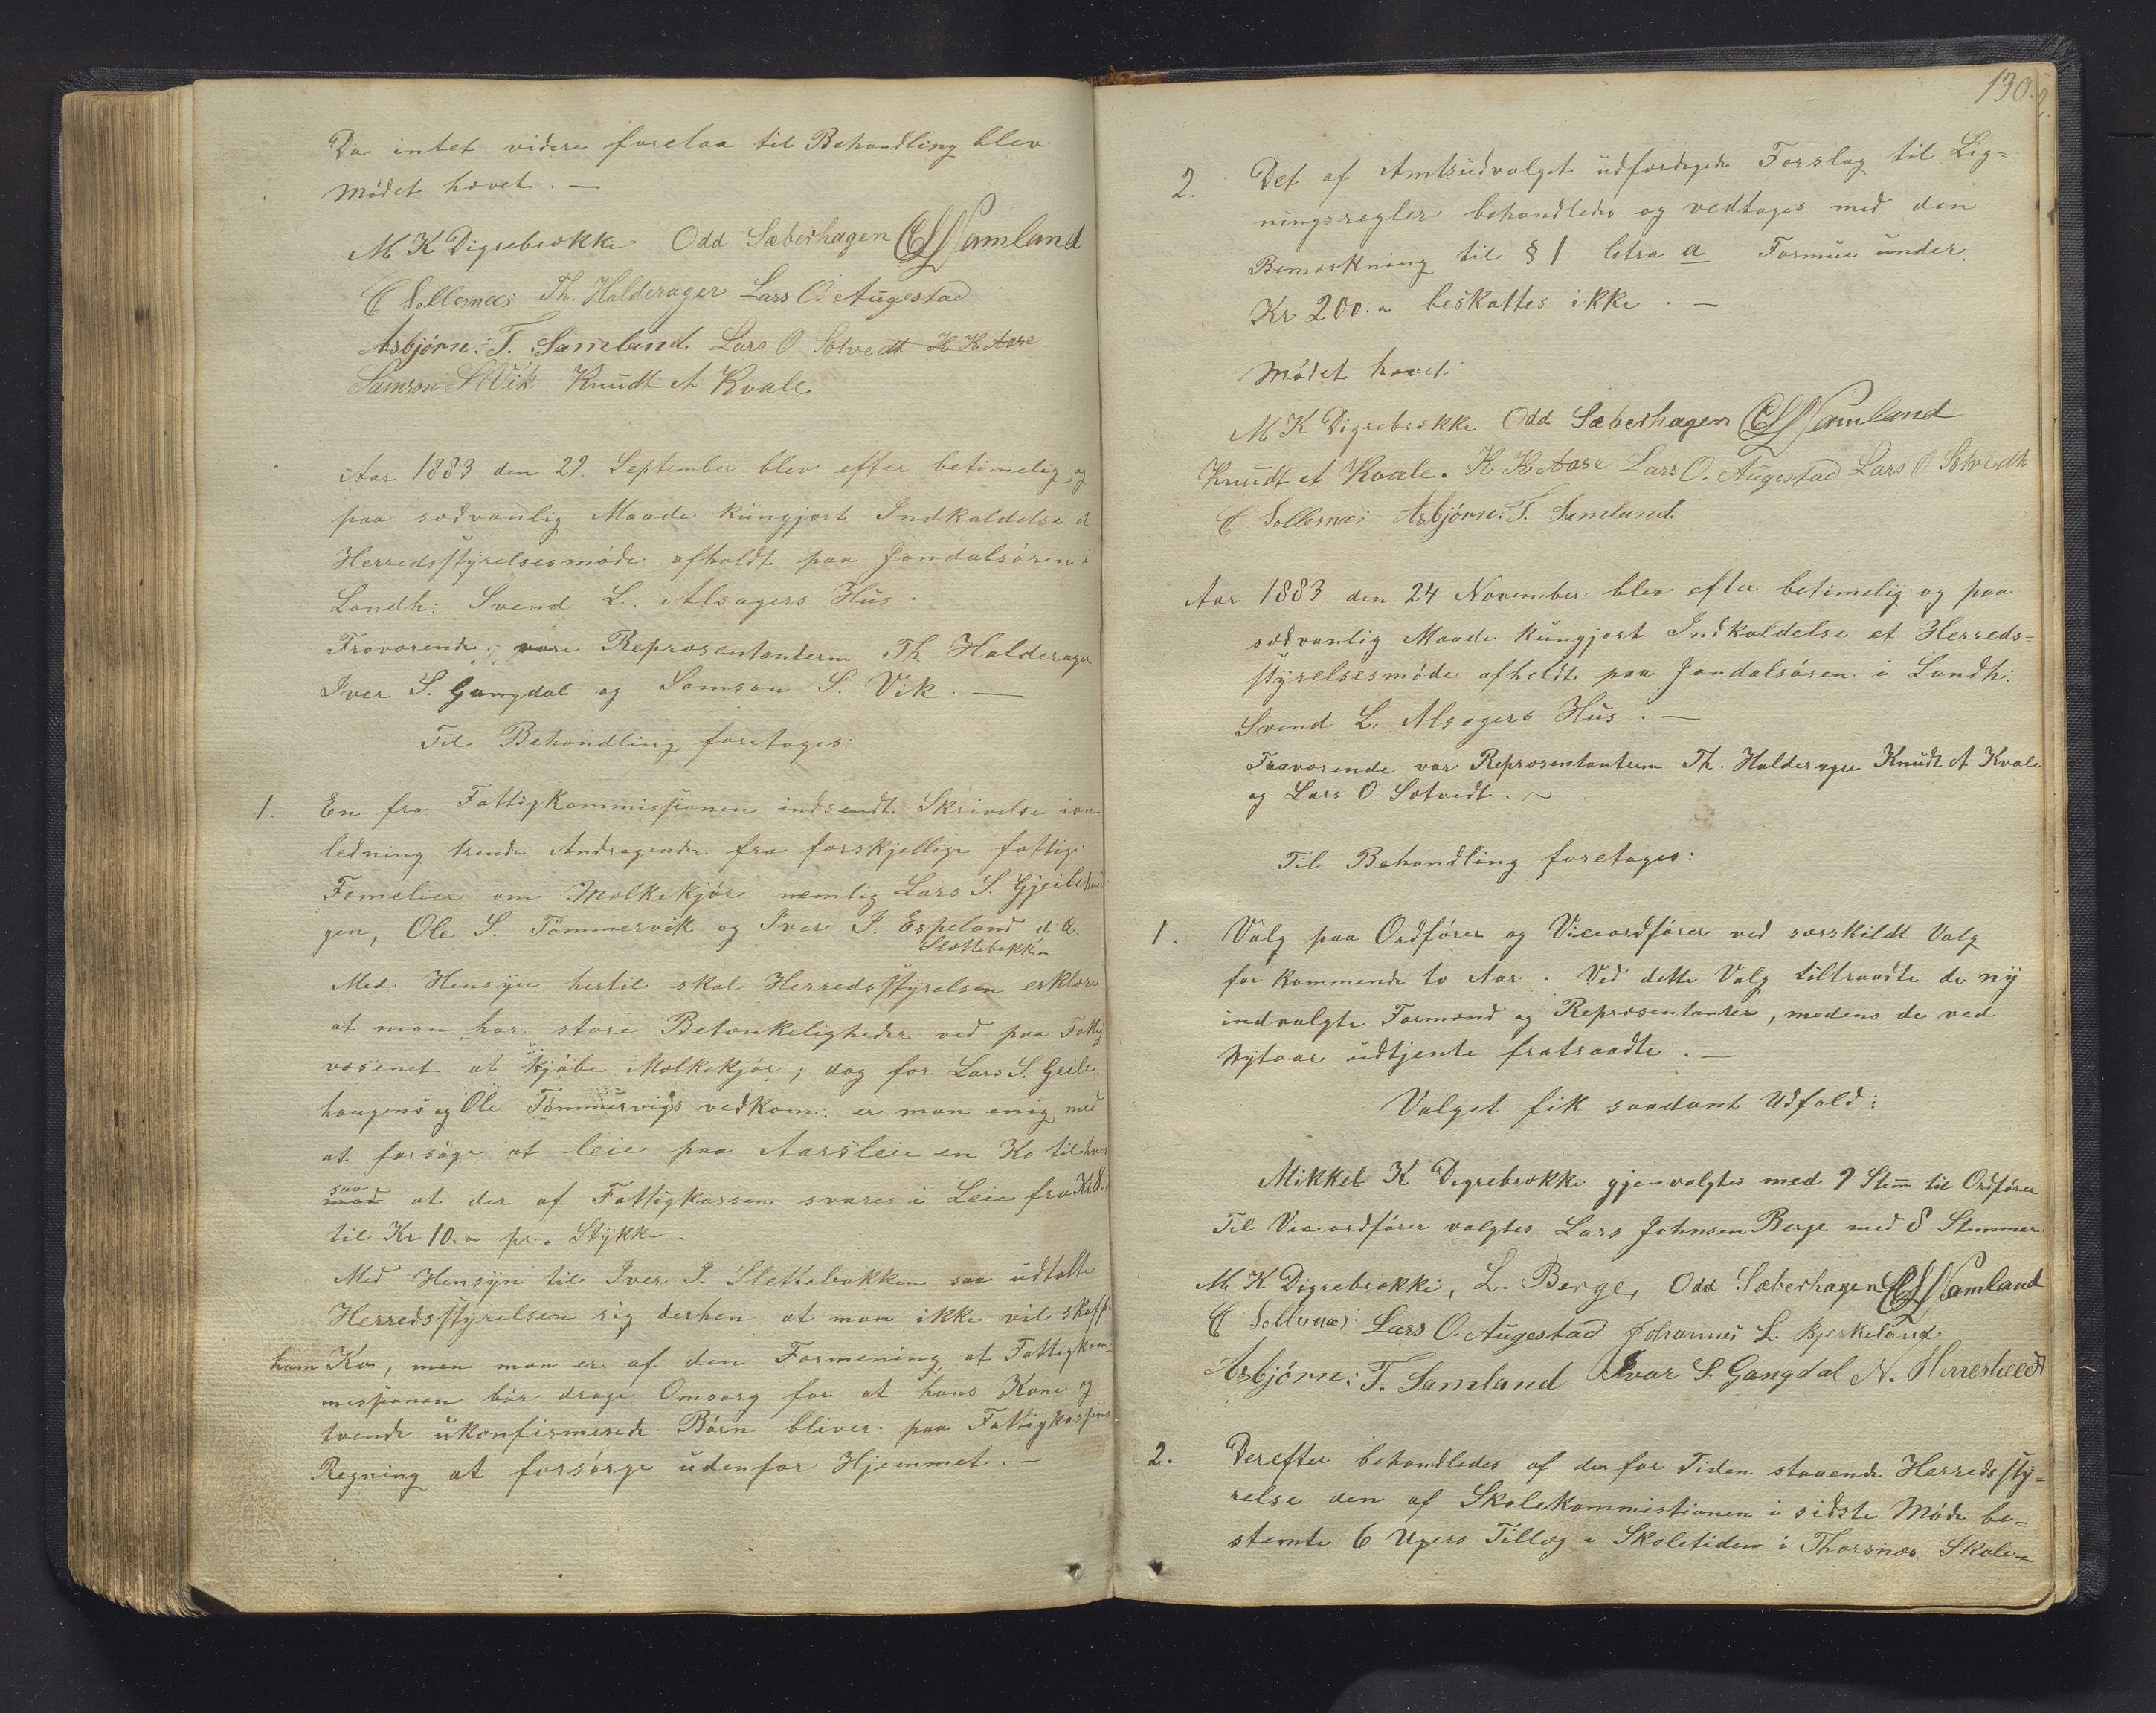 Da intet videre forelaa til Behandling blev
Mödet hævet. —
M K Digrebrække Odd Sæberhagen Samland
E Sollesnæs Th. Halderager Lars O. Augestad
Asbjörn: T. Samland. Lars O Sotvedt K K Aase
Samson S Vik: Knudt A Kvale
Aar 1883 den 29. September blev efter betimelig og
paa sædvanlig Maade kungjort Indkaldelse et
Herredsstyrelsesmöde afholdt paa Jondalsören i
Landh: Svend L. Alsagers Hus.
Fraværende vare Repræsentanterne Th Halderager
Iver S. Gangdal og Samson S. Vik. —
Til Behandling foretages:
1. En fra Fattigkommissionen indsendt Skrivelse ian-
ledning trende Andragender fra forskjellige fattige
Famelier om Melkekjör nemlig Lars S. Gjeilehau
gen, Ole S. Tömmervik og Iver I. Espeland d. Æ.
Slettebakken
Med Hensyn hertil skal Herredsstyrelsen erklære
at man har store Betænkeligheder ved paa Fattig
væsenet at kjöbe Melkekjör; dog for Lars S. Geile-
haugens og Ole Tömmervigs vedkom: er man enig med
at forsöge at leie paa Aarsleie en Ko til hver
saa
mod at der af Fattigkassen svares i Leie fra Kr 8.
til Kr 10.00 pr. Stykke.
Med Hensyn til Iver I. Slettebakken saa udtalte
Herredsstyrelsen sig derhen at man ikke vil skaffe
ham Ko, men man er af den Formening at Fattigkom-
missionen bör drage Omsorg for at hans Kone og
tvende ukonfirmerede Börn bliver paa Fattigkassens
Regning at forsörge udenfor Hjemmet. —
130.
2. Det af Amtsudvalget udfærdigede Forslag til Lig-
ningsregler behandledes og vedtoges med den
Bemærkning til § 1 litra a Formue under
Kr 200.00 beskattes ikke. —
Mödet hævet.
M K Digrebrække Odd Sæberhagen Samland
Knudt A Kvale. K K Aase Lars O. Augestad Lars O Sotvedt
E Sollesnæs Asbjörn: T. Samland.
Aar 1883 den 24 November blev efter betimelig og paa
sædvanlig Maade kungjort Indkaldelse et Herreds-
styrelsesmöde afholdt paa Jondalsören i Landh:
Svend L. Alsagers Hus. —
Fraværende var Repræsentanterne Th. Halderager Knudt A Kvale
og Lars O Sotvedt. ~
Til Behandling foretoges:
1. Valg paa Ordförer og Viceordförer ved særskildt Valg
for kommende to Aar. Ved dette Valg tiltraadte de ny
indvalgte Formænd og Repræsentanter, medens de ved
Nytaar udtjente fratraadte. —
Valget fik saadant Udfald:
Mikkel K Degrebrække gjenvalgtes med 9 Stem̅ til Ordförer
Til Viceordförer valgtes Lars Johnsen Berge med 8 Stemmer
M K Digrebrække, L. Berge, Odd Sæberhagen Samland
E Sollesnæs: Lars O. Augestad Johannes L. Bjerkeland
Asbjörn: T. Samland Ivar S. Gangdal N. Herrestvedt
2. Derefter behandledes af den for Tiden staaende Herredssty-
relse den af Skolekommistionen i sidste Möde be-
stemte 6 Ugers Tillæg i Skoletiden i Thorsnæs Skole-